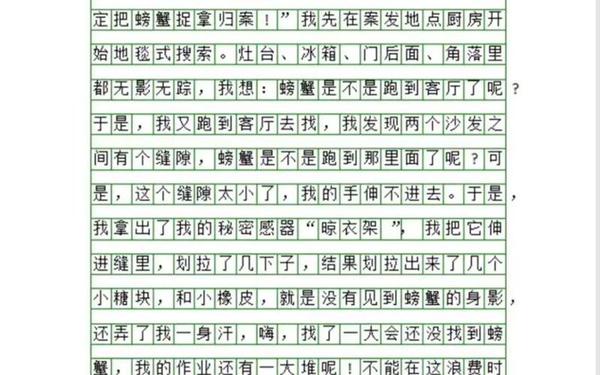 定把螃蟹捉拿归案！”我先在案发地点厨房开
始地毯式搜索。灶台、冰箱、门后面、角落里
都无影无踪，我想：螃蟹是不是跑到客厅了呢？
于是，我又跑到客厅去找，我发现两个沙发之
间有个缝隙，螃蟹是不是跑到那里面了呢？可
是，这个缝隙太小了，我的手伸不进去。于是，
我拿出了我的秘密感器“晾衣架”，我把它伸
进缝里，划拉了几下子，结果划拉出来了几个
小糖块，和小橡皮，就是没有见到螃蟹的身影，
还弄了我一身汗，嗨，找了一大会还没找到螃
蟹，我的作业还有一大堆呢！不能在这浪费时